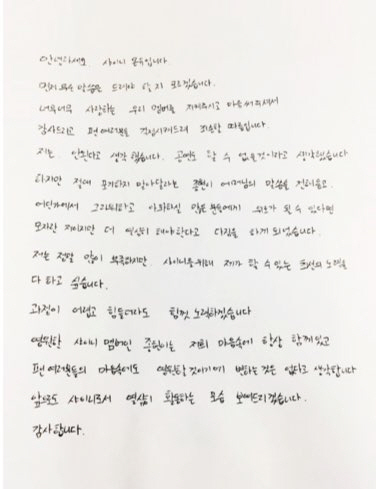 안녕하세요 샤이니 온유입니다.
먼저 무슨 말씀을 드려야 할지 모르겠습니다.
너무너무 사랑하는 우리 멤버를 지켜주시고 마음써주셔서
감사드리고 팬 여러분들 걱정시켜드려 죄송할 따름입니다.
저는 안된다고 생각했습니다. 공연도 할 수 없을것이라고 생각했습니다
하지만 절대 포기하지 말아달라는 종현이 어머님의 말씀을 전해듣고,
어딘가에서 그리워하고 아파하실 많은 분들에게 위로가 될 수 있다면
모자란 저이지만 더 열심히 해야한다고 다짐을 하게 되었습니다.
저는 정말 많이 부족하지만 샤이니를 위해 제가 할 수 있는 최선의 노력을
다 하고 싶습니다.
과정이 어렵고 힘들더라도 힘껏 노력하겠습니다
영원한 샤이니 멤버인 종현이는 저희 마음속에 항상 함께있고
팬 여러분들의 마음속에도 영원할 것이기에 변하는 것은 없다고 생각합니다
앞으로도 샤이니로서 열심히 활동하는 모습 보여드리겠습니다.
감사합니다.